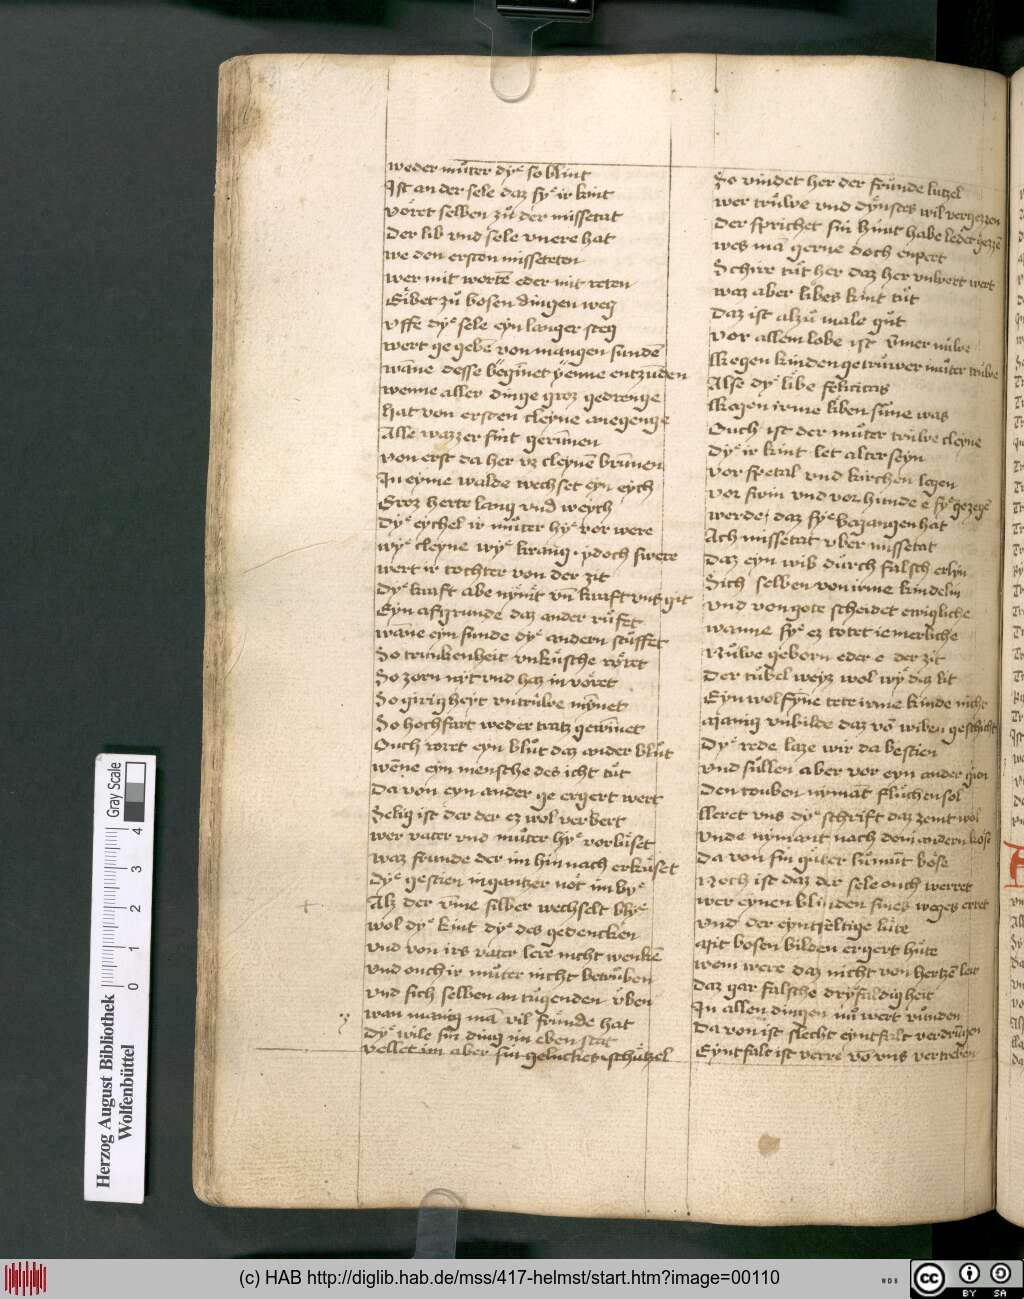 weder muͦter dyͤ so blint
Ist an der sele daz syͤ ir kint
voͤret selben zuͦ der missetat
Der lib vnd sele vnere hat
we den ersten missereten
wer mit worte͂ oder mit reten
Gibet zuͦ bosen dingen weg
vffe dyͤ sele eyn langer steg
wert ge gebe͂ von mangen sunde͂
wa͂ne desse beginet yenne entzuͤden
wenne aller dinge groz gedrenge
hat von ersten cleyne anegenge
Alle wazzer sint geru͂nen
von erst da her vz cleyne͂ bru͂nen
In eyme walde wechset eyn eych
Groz herte lang vnd weych
Dyͤ eychel ir muͦter hyͤ vor were
wyͤ cleyne wyͤ krang ydoch swere
wert ir tochter von der zit
Dyͤ kraft abe nymt vn͂ kraft vns git
Eyn afgrunde daz ander ruͦfet
wa͂ne eyn sunde dyͤ andern stuͤffet
So trunkenheit vnkuͤsche roͤret
So zorn nyt vnd haz in voͤret
So girigheyt vntruͤwe mynet
So hochfart weder tratz gewinet
Ouch roret eyn bluͦt daz ander bluͦt
we͂ne eyn mensche des icht tuͦt
Da von eyn ander ge ergert wert
Selig ist der der ez wol verbert
wer vater vnd muͦter hyͤ vorluͤset
waz frunde der im hin nach erkuͤset
Dyͤ gestien in gantzer not im byͤ
Alz der vme silber wechselt blyͤ
wol dyͤ kint dyͤ des gedencken
vnd von irs vater lere nicht wenke͂
vnd ouch ir muͦter nicht betruͤben
vnd sich selben an tugenden vben
wan manig ma͂ vil fruͤnde hat
Dyͤ wile sin ding im eben stat
vellet im aber sin geluckes schuͤtzel
So vindet her der fruͤnde lutzel
wer truͤwe vnd dynstes wil vergezzen
Der sprichet sin hunt habe leder gezze͂
wes ma͂ gerne doch enpert
Schire tuͦt her daz her vnwert wert
waz aber libes kint tuͦt
Daz ist alzuͦ male guͦt
vor allem lobe ist ymer nuͤwe
Kegen kinden getruͤwer muͦter truͤwe
Alse dyͤ libe felicitas
Kegen irme liben sune was
Ouch ist der muͦter truͤwe cleyne
Dyͤ ir kint let alterseyn
vor spetal vnd kirchen legen
vor swin vnd vor hunde e syͤ gezege͂
werde daz syͤ begangen hat
Ach missetat vber missetat
Daz eyn wib durch falsch erlyn
Sich selben von irme kindelin
vnd von gote scheidet ewigliche
wanne syͤ ez totet iemerliche
Nuͤwe geborn oder e der zit
Der tuͤbel weyz wol wyͤ daz lit
Eyn wolfynne tete irme kinde nicht
Manig vnbilde daz vo͂ wiben geschicht
Dyͤ rede laze wir da bestien
vnd sullen aber vor eyn ander gien
Den touben nyma͂t fluͦchen sol
lleret vns dyͤ schrift daz zemt wol
vnde nymant nach dem andern kose
Da von sin guter luͤmut bose
Noch ist daz der sele ouch werret
wer eynen blinden sines weges erret
vnd der eyntfeltige luͤte
Mit bosen bilden ergert huͤte
wem were daz nicht von hertze͂ leit
daz gar falsche dryfaldigheit
In allen dingen nuͦ wert vunden
Da von ist slecht eyntfalt verdrungen
Eyntfalt ist verre vo͂ vns vertreben
Herzog August Bibliothek
Wolfenbüttel
Gray Scale
0 1 2 3 4
(c) HAB http://diglib.hab.de/mss/417-helmst/start.htm?image=00110
WDB
cc BY SA